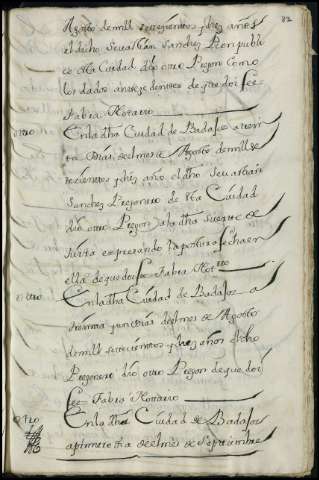 82
Agosto de mill settezientos y diez años
el dicho Sevastian Sanchez Pregon publi
co de la Ciudad dio otro Pregon Como
los dados antezedentes de que doi fee
Fabra Notario
otro
En la dha Ciudad de Badajoz a trein
ta dias del mes de Agosto de mill se
tezientos y diez años el dho Sevastian
Sanchez Pregonero de dha Ciudad
dio otro Pregon a la dha suerte de
tierra expresando la postura fecha en
ella de que doi fee Fabra Not.rio
otro
En la dha Ciudad de Badajoz a
treinta y un dias del mes de Agosto
de mill settezientos y diez años el dho
Pregonero dio otro Pregon de que doi
fee Fabra Notario
otro
En la dha Ciudad de Badajoz
a primero dia del mes de Septiembre